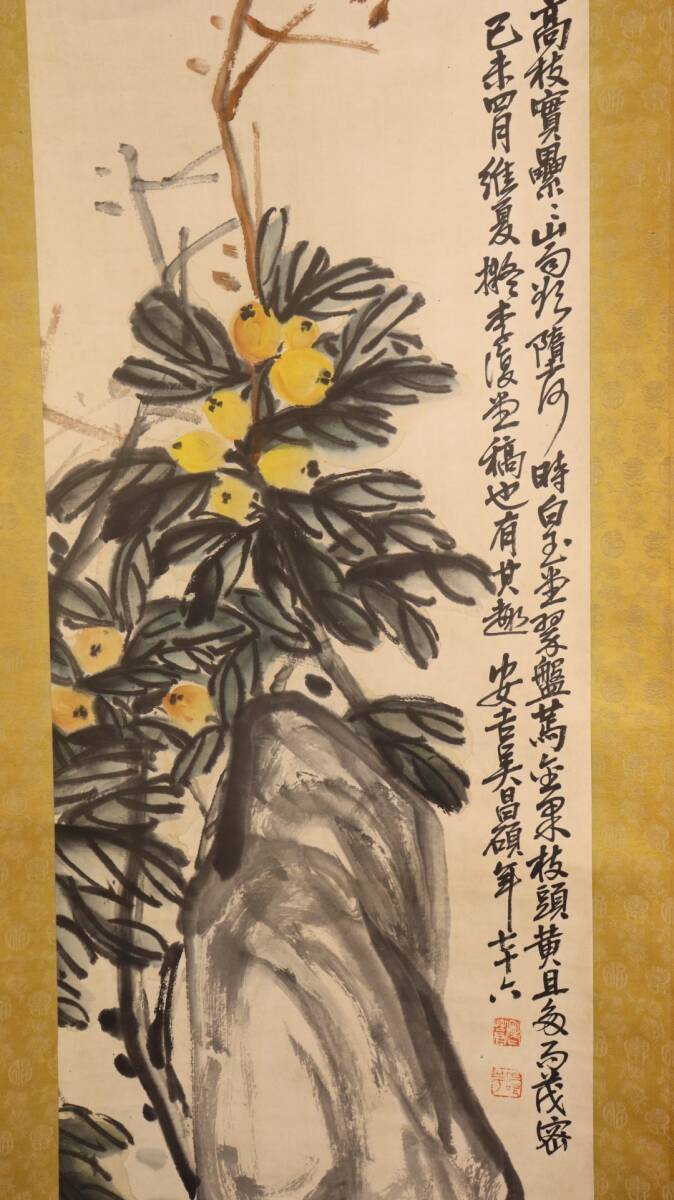 高枝實纍〻山雨欲墮何時白玉堂翠盤薦金果枝頭黄且多而茂密
己未四月維夏擬李復堂稿也有其趣安吉吴昌碩年七十六